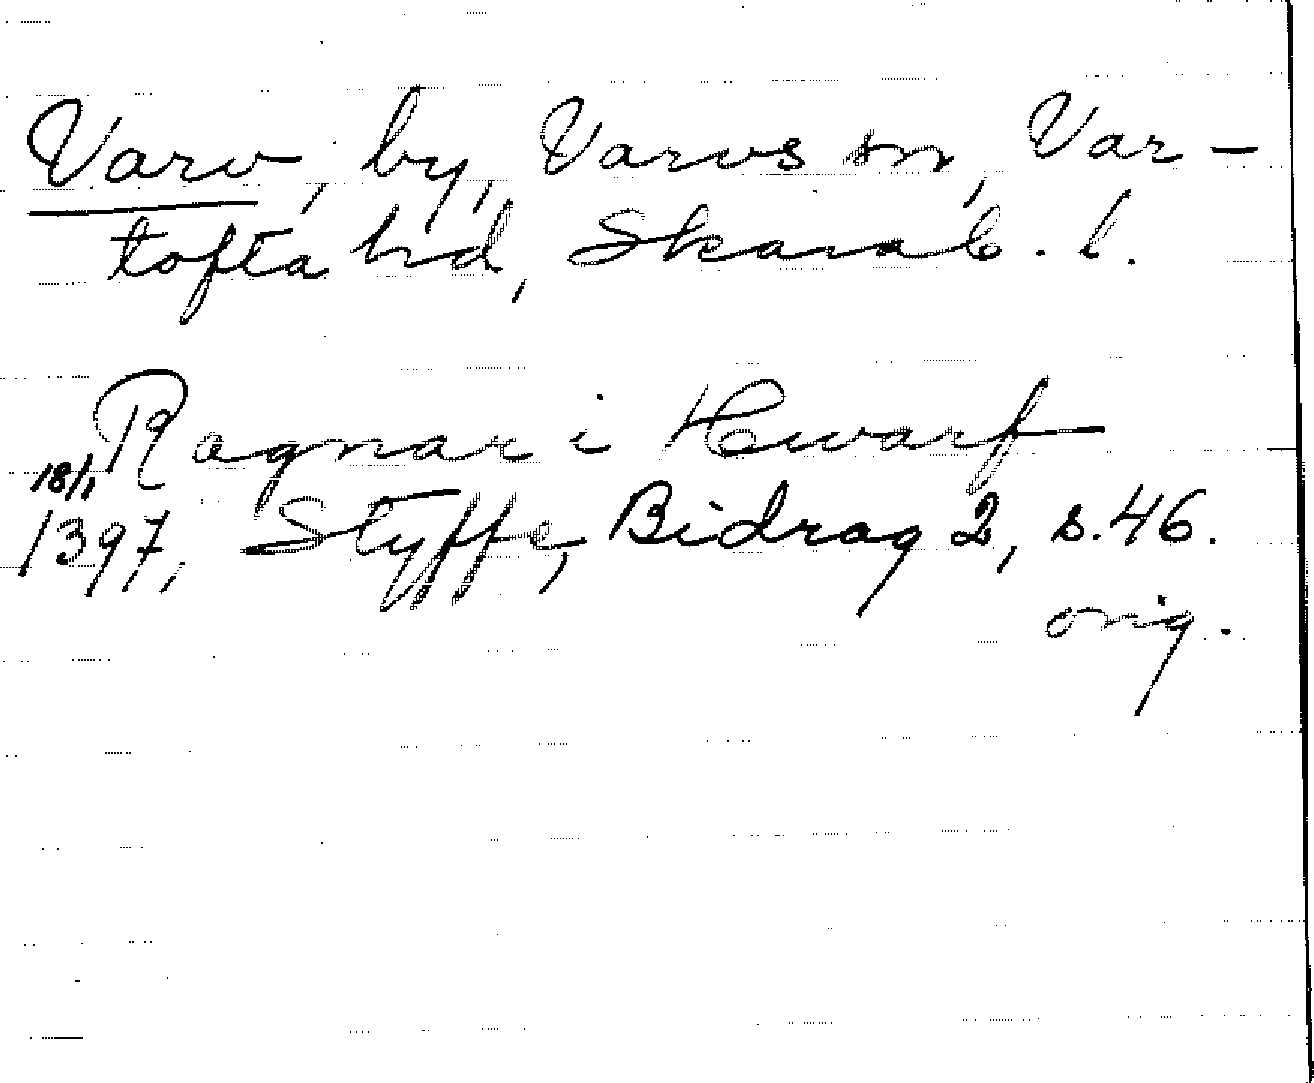 Varv, by, Varvs sn, Var-
tofta hd, Skarab. l.
Ragnar i Hwarf
18/1
1397, Styffe, Bidrag 2, s. 46.
orig.